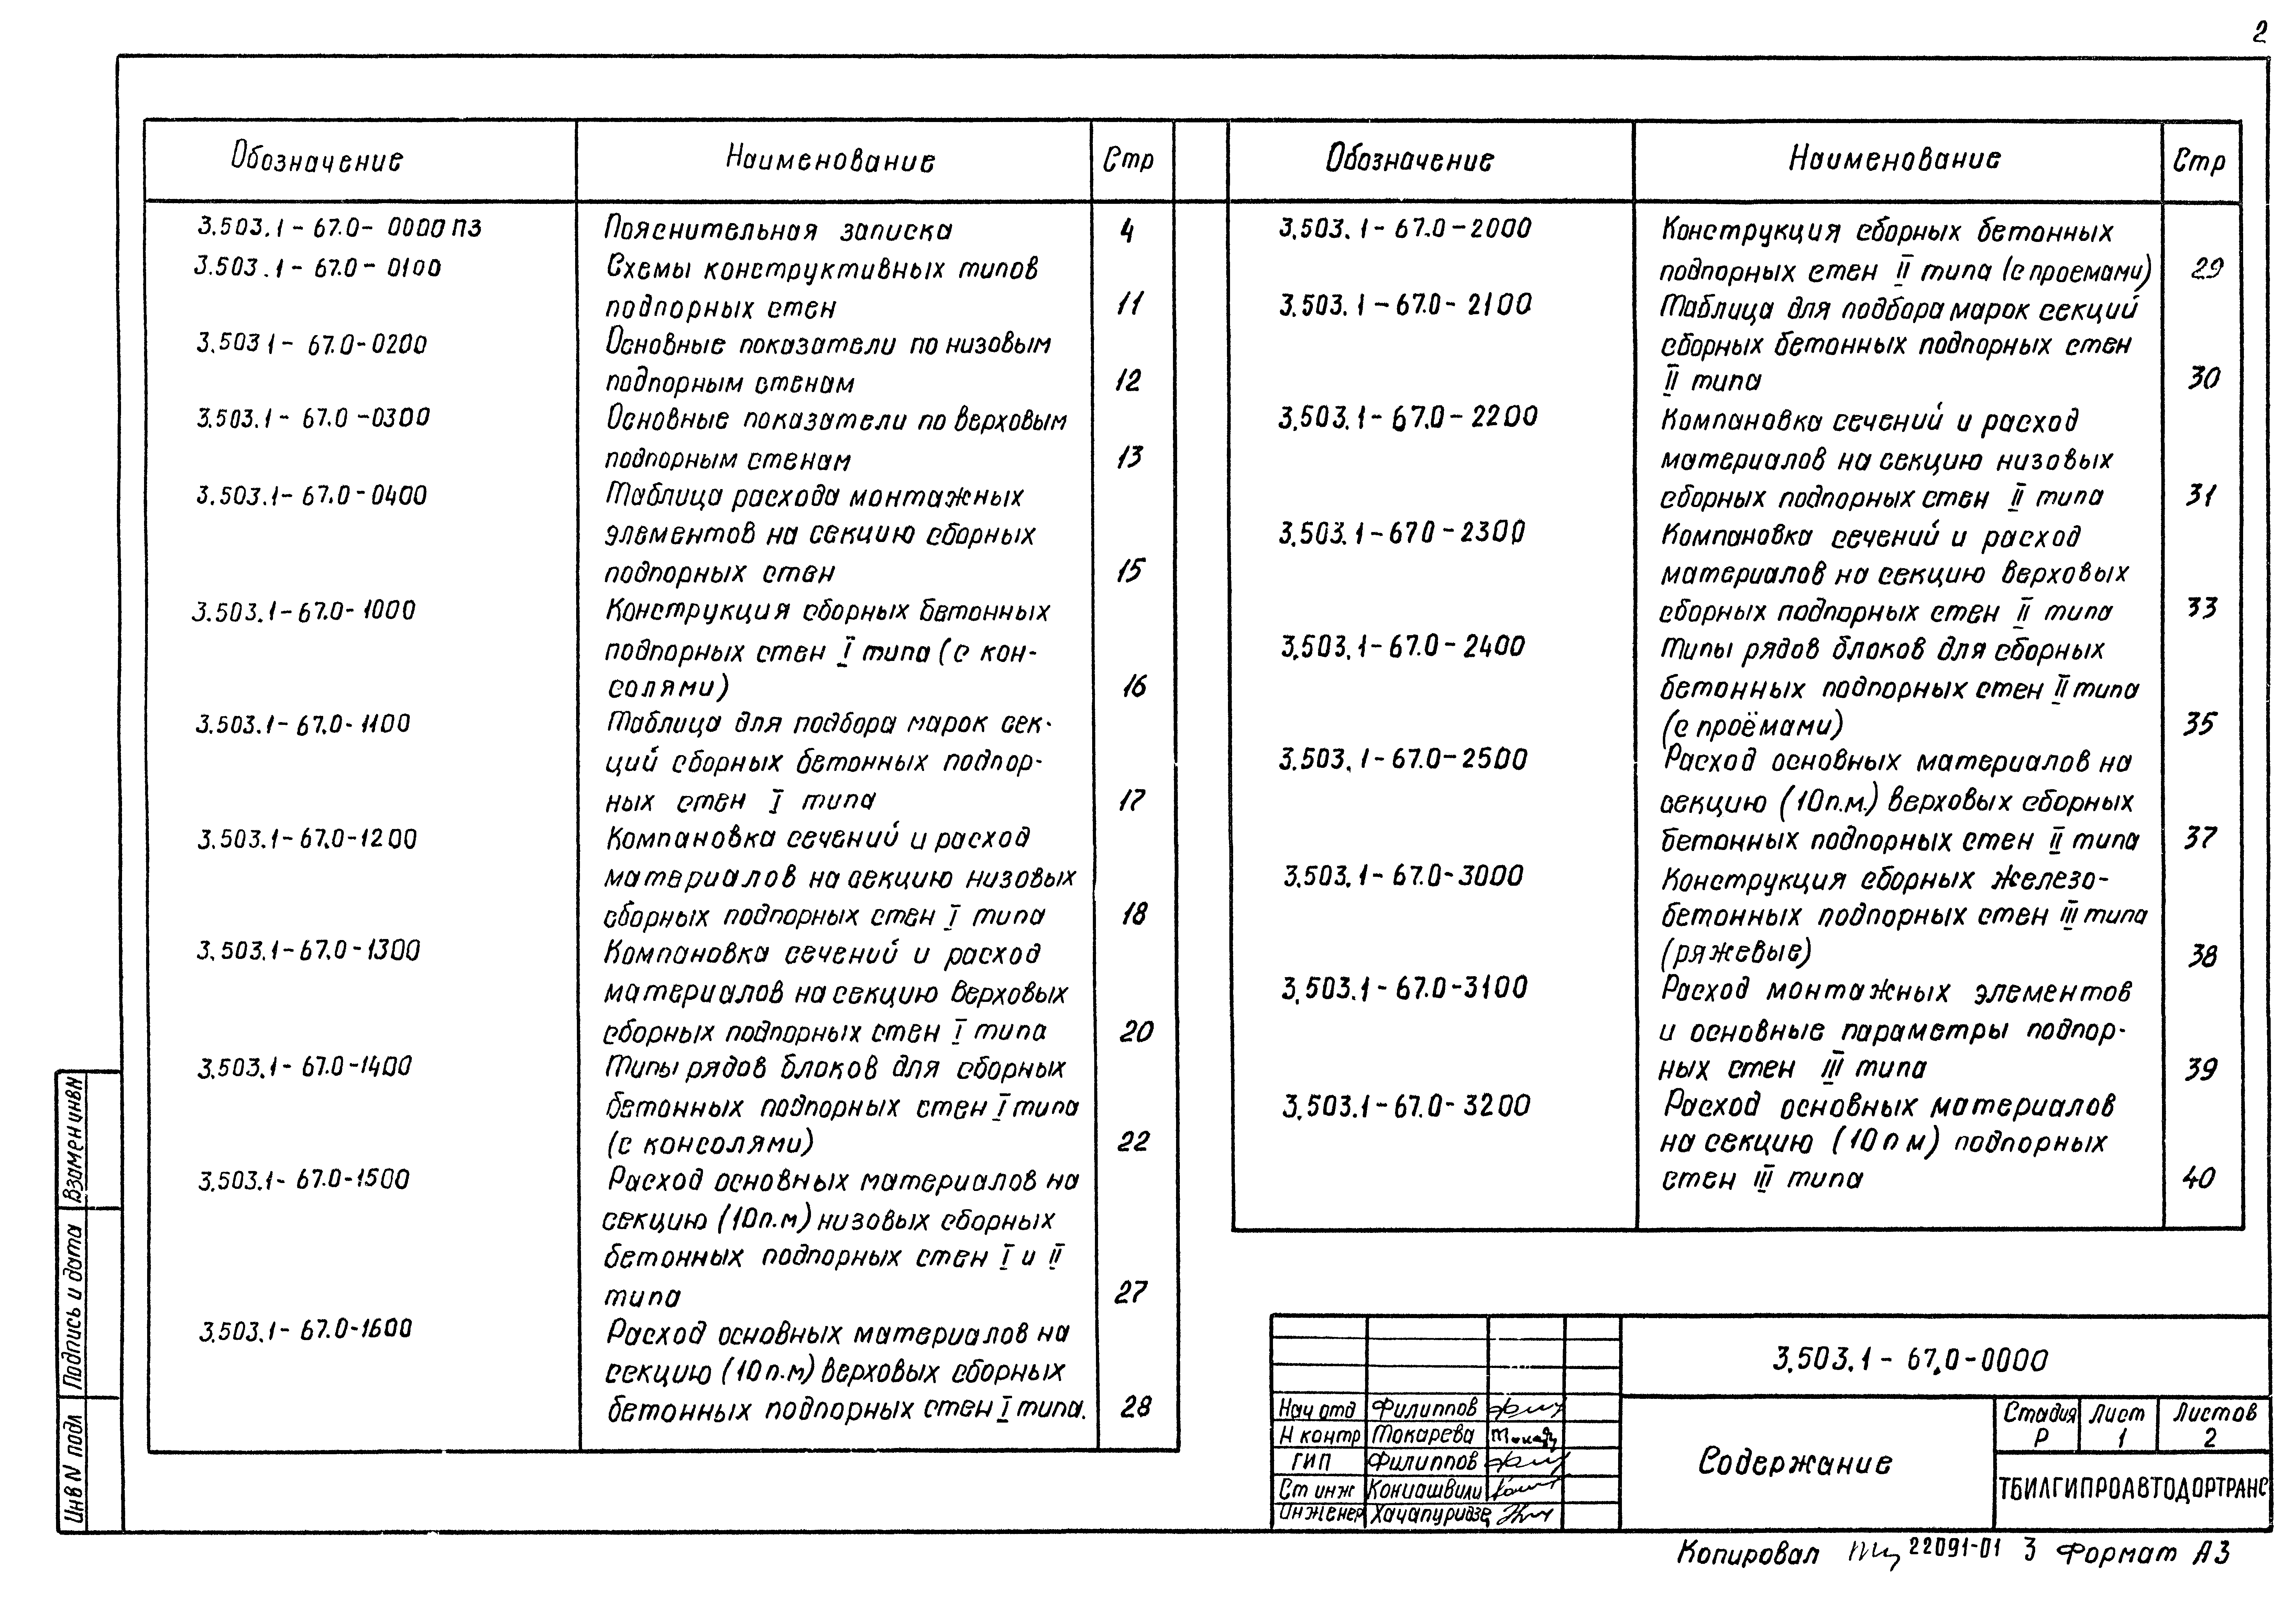 2
Обозначение Наименование Стр
3.503.1-67.0-0000ПЗ Пояснительная записка 4
3.503.1-67.0-0100 Схемы конструктивных типов
подпорных стен 11
3.503 1-67.0-0200 Основные показатели по низовым
подпорным стенам 12
3.503.1-67.0-0300 Основные показатели по верховым
подпорным стенам 13
3.503.1-67.0-0400 Таблица расхода монтажных
элементов на секцию сборных
подпорных стен 15
3.503.1-67.0-1000 Конструкция сборных бетонных
подпорных стен I типа (с кон-
солями) 16
3.503.1-67.0-1100 Таблица для подбора марок сек-
ций сборных бетонных подпор-
ных стен I типа 17
3.503.1-67.0-1200 Компановка сечений и расход
материалов на секцию низовых
сборных подпорных стен I типа 18
3.503.1-67.0-1300 Компановка сечений и расход
материалов на секцию верховых
сборных подпорных стен I типа 20
3.503.1-67.0-1400 Типы рядов блоков для сборных
бетонных подпорных стен I типа
(с консолями) 22
3.503.1-67.0-1500 Расход основных материалов на
секцию (10п.м) низовых сборных
бетонных подпорных стен I и II
типа 27
3.503.1-67.0-1600 Расход основных материалов на
секцию (10п.м) верховых сборных
бетонных подпорных стен I типа. 28
Обозначение Наименование Стр
3.503.1-67.0-2000 Конструкция сборных бетонных
подпорных стен II типа (с проемами) 29
3.503.1-67.0-2100 Таблица для подбора марок секций
сборных бетонных подпорных стен
II типа 30
3.503.1-67.0-2200 Компановка сечений и расход
материалов на секцию низовых
сборных подпорных стен II типа 31
3.503.1-670-2300 Компановка сечений и расход
материалов на секцию верховых
сборных подпорных стен II типа 33
3.503.1-67.0-2400 Типы рядов блоков для сборных
бетонных подпорных стен II типа
(с проёмами) 35
3.503.1-67.0-2500 Расход основных материалов на
секцию (10п.м.) верховых сборных
бетонных подпорных стен II типа 37
3.503.1-67.0-3000 Конструкция сборных железо-
бетонных подпорных стен III типа
(ряжевые) 38
3.503.1-67.0-3100 Расход монтажных элементов
и основные параметры подпор-
ных стен III типа 39
3.503.1-67.0-3200 Расход основных материалов
на секцию (10 п м) подпорных
стен III типа 40
Взамен инв N
Подпись и дата
Инв N подл
3.503.1-67.0-0000
Нач отд Филиппов
Н контр Токарева
ГИП Филиппов
Ст инж Кониашвили
Инженер Хачапуридзе
Содержание
Стадия Лист Листов
Р 1 2
ТБИЛГИПРОАВТОДОРТРАНС
Копировал 22091-01 3 Формат А3